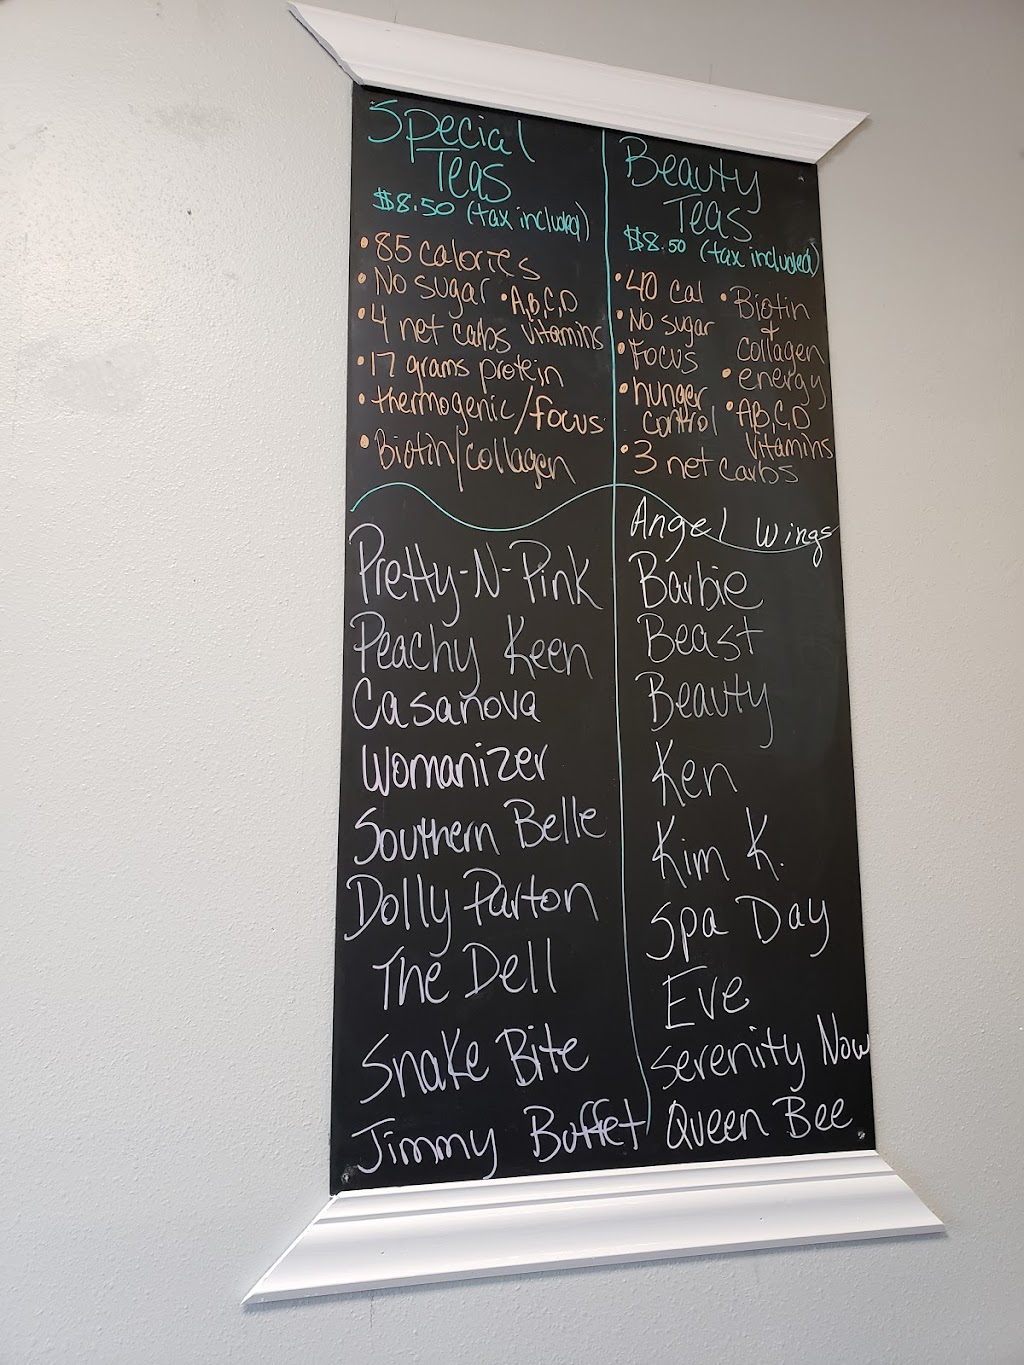 Special
Teas
$8.50 (tax included)
• 85 calories
• No sugar • A,B,C,D
• 4 net carbs vitamins
• 17 grams protein
• thermogenic/focus
• Biotin/collagen
Pretty-N-Pink
Peachy Keen
Casanova
Womanizer
Southern Belle
Dolly Parton
The Dell
Snake Bite
Jimmy Buffet
Beauty
Teas
$8.50 (tax included)
• 40 cal • Biotin
• No sugar +
• Focus collagen
• hunger • energy
control • A,B,C,D
vitamins
• 3 net carbs
Angel Wings
Barbie
Beast
Beauty
Ken
Kim K.
Spa Day
Eve
Serenity Now
Queen Bee